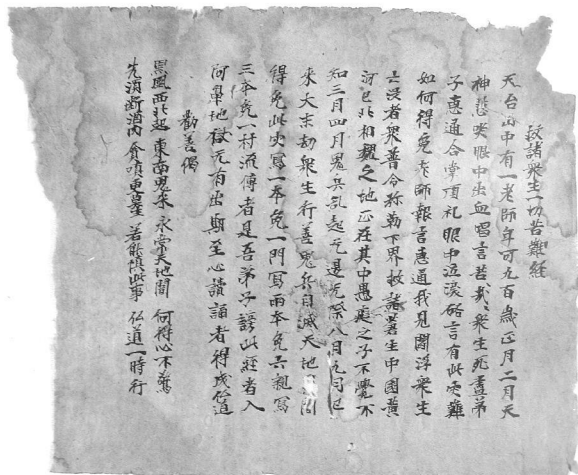 救諸衆生一切苦難經
天台山中有一老師年可九百歲正月二月天
神悲哭眼中出血唱言苦哉衆生死盡弟
子惠通合掌頂礼眼中泣淚啓言有此災難
如何得免老師報言惠通我見閻浮衆生
亡没者衆普令弥勒下界救諸蒼生中國黄
河已北相魏之地正在其中愚癡之子不覺不
知三月四月鬼兵乱起无邊无際八月九月已
來大末劫衆生行善鬼兵自滅天地間
得免此災寫一本免一門寫兩本免六親寫
三本免一村流傳者是吾弟子謗此經者入
阿鼻地獄无有出期至心讀誦者得成仏道
勸善偈
黑風西北起 東南鬼兵 永常天地闇 何得心不驚
先須断酒肉 貪嗔更莫 若能慎此事 仏道一時行